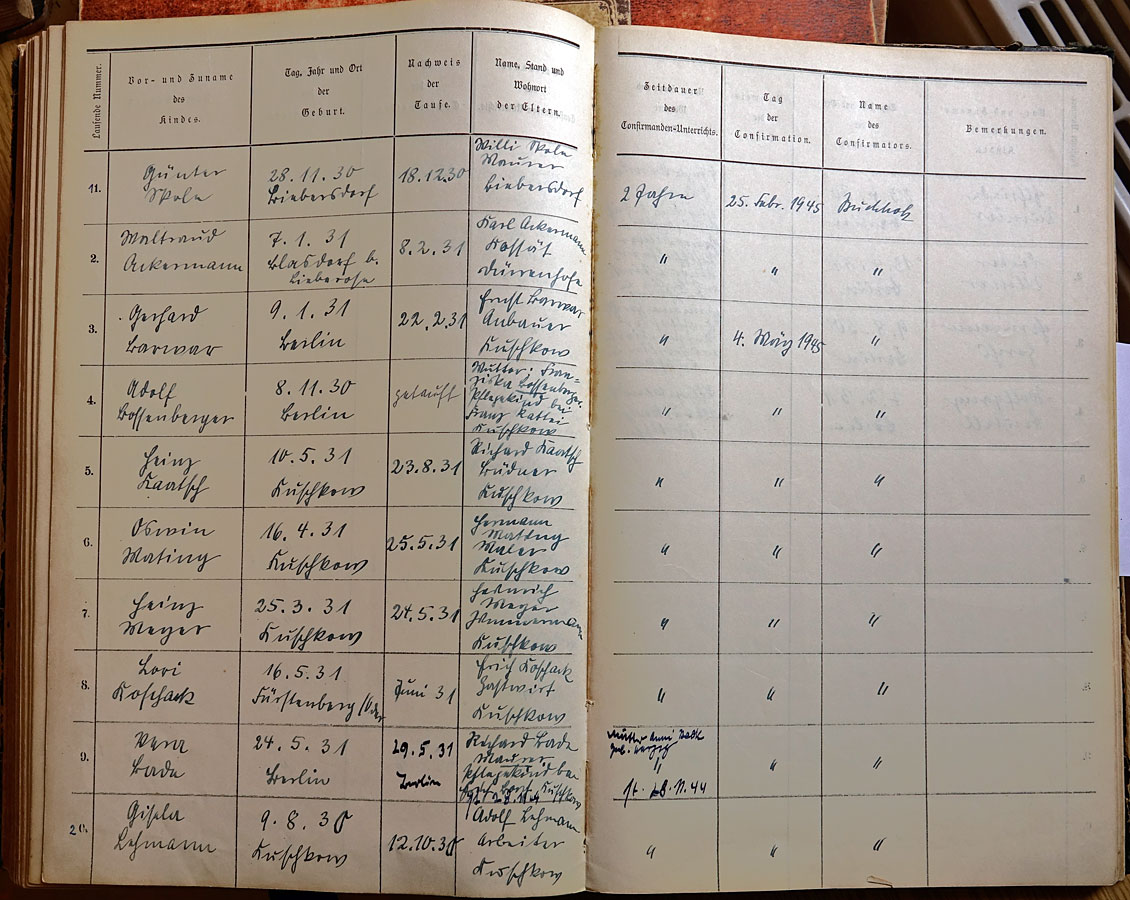 Laufende Nummer.
Vor- und Zuname
des
Kindes.
Tag, Jahr und Ort
der
Geburt.
Nachweis
der
Taufe.
Name, Stand und
Wohnort
der Eltern.
Zeitdauer
des
Confirmanden-Unterrichts.
Tag
der
Confirmation.
Name
des
Confirmators.
Bemerkungen.
11.
Günter
28. 11. 30
Biebersdorf
18. 12. 30
Willi
Maurer
Biebersdorf
2 Jahre
25. Febr. 1945
Buchholz
2.
Waltraud
Ackermann
7. 1. 31
Blasdorf b.
Lieberose
8. 2. 31
Karl Ackermann
Kossät
Dürrenhofe
"
"
"
3.
Gerhard
Barwar
9. 1. 31
Berlin
22. 2. 31
Ernst Barwar
Anbauer
Kuschkow
"
4. März 1945
"
4.
Adolf
Bossenberger
8. 11. 30
Berlin
getauft
Mutter: Fran-
ziska Bossenberger
Pflegekind bei
Franz
Kuschkow
"
"
"
5.
Heinz
Kaatsch
10. 5. 31
Kuschkow
23. 8. 31
Richard Kaatsch
Büdner
Kuschkow
"
"
"
6.
Oswin
Mating
16. 4. 31
Kuschkow
25. 5. 31
Hermann
Mating
Maler
Kuschkow
"
"
"
7.
Heinz
Meyer
25. 3. 31
Kuschkow
24. 5. 31
Heinrich
Meyer
Zimmermann
Kuschkow
"
"
"
8.
Lori
Koschack
16. 5. 31
Fürstenberg/Oder
Juni 31
Erich Koschack
Gastwirt
Kuschkow
"
"
"
9.
Vera
Bade
24. 5. 31
Berlin
29. 5. 31
Berlin
Richard Bade
Maurer
Pflegekind bei
Kuschkow
Mutter Anni
geb.
"
st. 28. 11. 44
"
"
20.
Gisela
Lehmann
9. 8. 30
Kuschkow
12. 10. 30
Adolf Lehmann
Arbeiter
Kuschkow
"
"
"